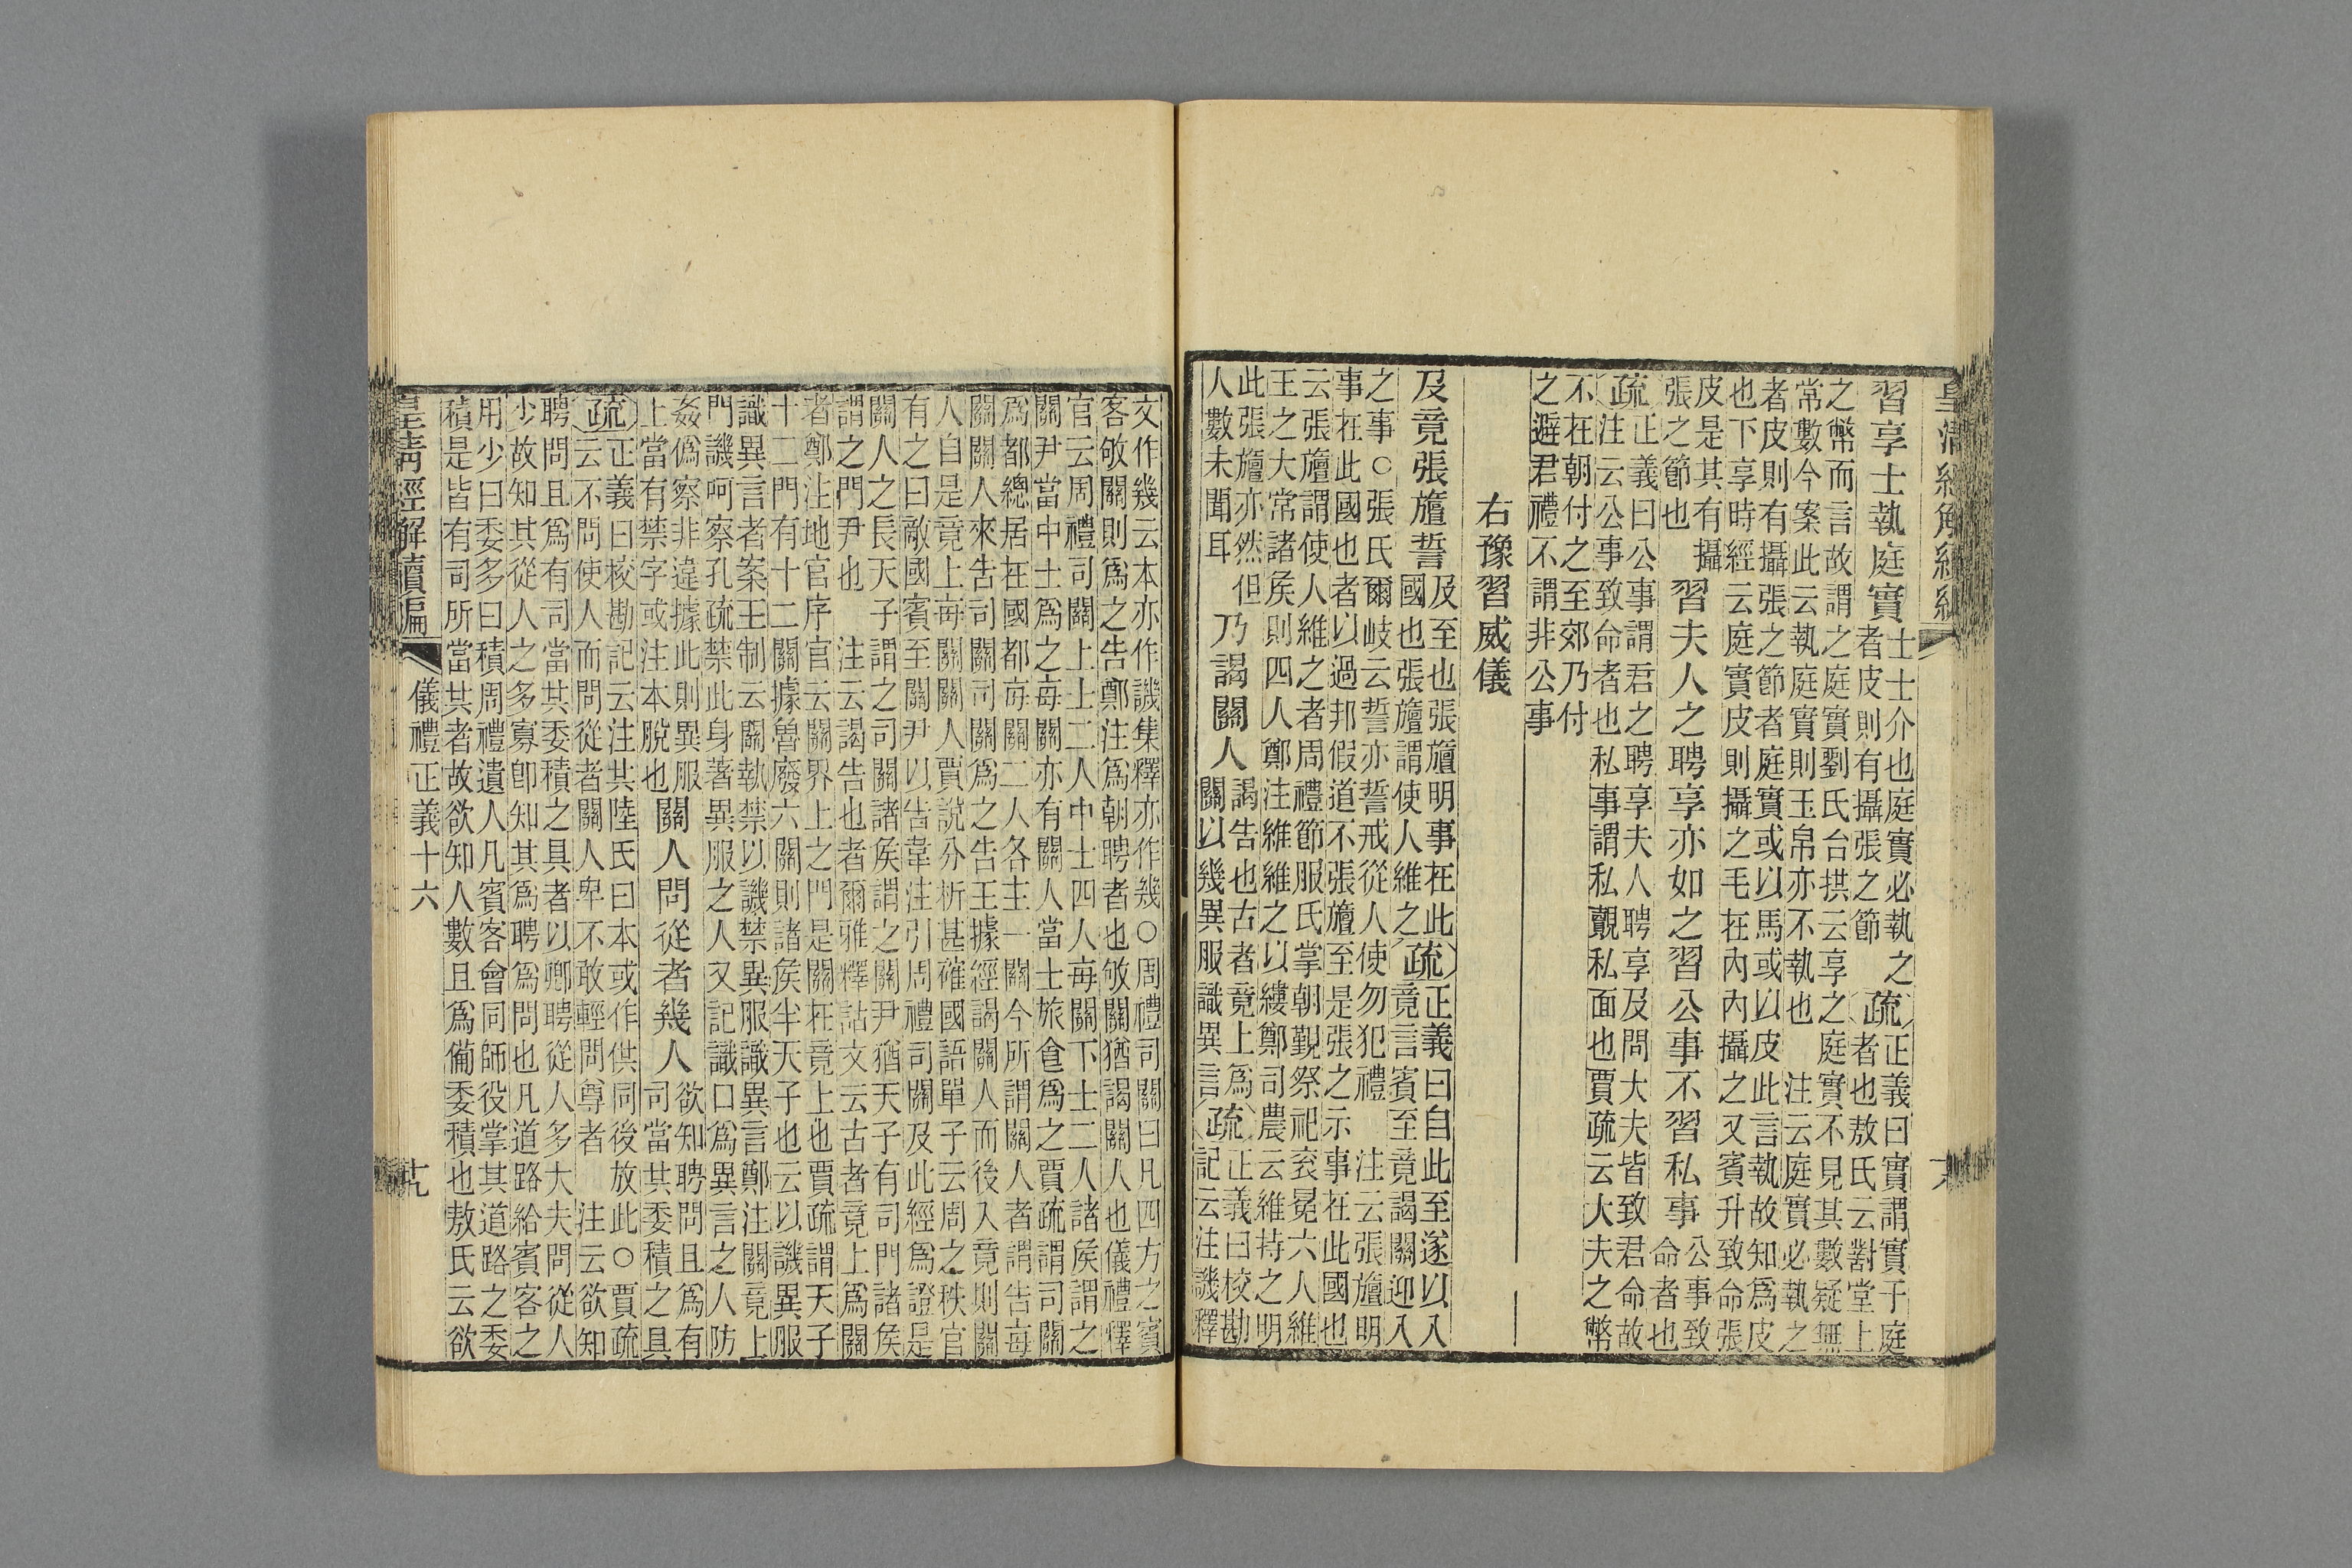 皇清經解續編
習享士執庭實
士士介也庭實必執之
者皮則有攝張之節
疏
正義曰實謂實于庭
者也敖氏云對堂上
之幣而言故謂之庭實劉氏台拱云享之庭實不見其數疑無
常數今案此云執庭實則玉帛亦不執也　注云庭實必執之
者皮則有攝張之節者庭實或以馬或以皮此言執故知爲皮
也下享時經云庭實皮則攝之毛在內內攝之又賓升致命張
皮是其有攝
張之節也
習夫人之聘享亦如之習公事不習私事
公事致
命者也
疏
正義曰公事謂君之聘享夫人聘享及問大夫皆致君命故
注云公事致命者也私事謂私覿私面也賈疏云大夫之幣
不在朝付之至郊乃付
之避君禮不謂非公事
右豫習威儀
及竟張旜誓
及至也張旜明事在此
國也張旜謂使人維之
疏
正義曰自此至遂以入
竟言賓至竟謁關迎入
之事○張氏爾岐云誓亦誓戒從人使勿犯禮　注云張旜明
事在此國也者以過邦假道不張旜至是張之示事在此國也
云張旜謂使人維之者周禮節服氏掌朝覲祭祀衮冕六人維
王之大常諸矦則四人鄭注維維之以縷鄭司農云維持之明
此張旜亦然但
人數未聞耳
乃謁關人
謁告也古者竟上爲
關以幾異服識異言
疏
正義曰校勘
記云注譏釋
文作幾云本亦作譏集釋亦作幾○周禮司關曰凡四方之賓
客敂關則爲之告鄭注爲朝聘者也敂關猶謁關人也儀禮釋
官云周禮司關上上二人中士四人每關下士二人諸矦謂之
關尹當中士爲之每關亦有關人當士旅食爲之賈疏謂司關
爲都總居在國都每關二人各主一關今所謂關人者謂告每
關關人來告司關司關爲之告王據經謁關人而後入竟則關
人自是竟上每關關人賈說分析甚確國語單子云周之秩官
有之曰敵國賓至關尹以告韋注引周禮司關及此經爲證是
關人之長天子謂之司關諸矦謂之關尹猶天子有司門諸矦
謂之門尹也　注云謁告也者爾雅釋詁文云古者竟上爲關
者鄭注地官序官云關界上之門是關在竟上也賈疏謂天子
十二門有十二關據魯廢六關則諸矦半天子也云以譏異服
識異言者案王制云關執禁以譏禁異服識異言鄭注關竟上
門譏呵察孔疏禁此身著異服之人又記識口爲異言之人防
姦僞察非違據此則異服
上當有禁字或注本脫也
關人問從者幾人
欲知聘問且爲有
司當其委積之具
疏
正義曰校勘記云注其陸氏曰本或作供同後放此○賈疏
云不問使人而問從者關人卑不敢輕問尊者　注云欲知
聘問且爲有司當其委積之具者以卿聘從人多大夫問從人
少故知其從人之多寡卽知其爲聘爲問也凡道路給賓客之
用少曰委多曰積周禮遺人凡賓客會同師役掌其道路之委
積是皆有司所當其者故欲知人數且爲備委積也敖氏云欲
皇清經解續編
儀禮正義十六
十九